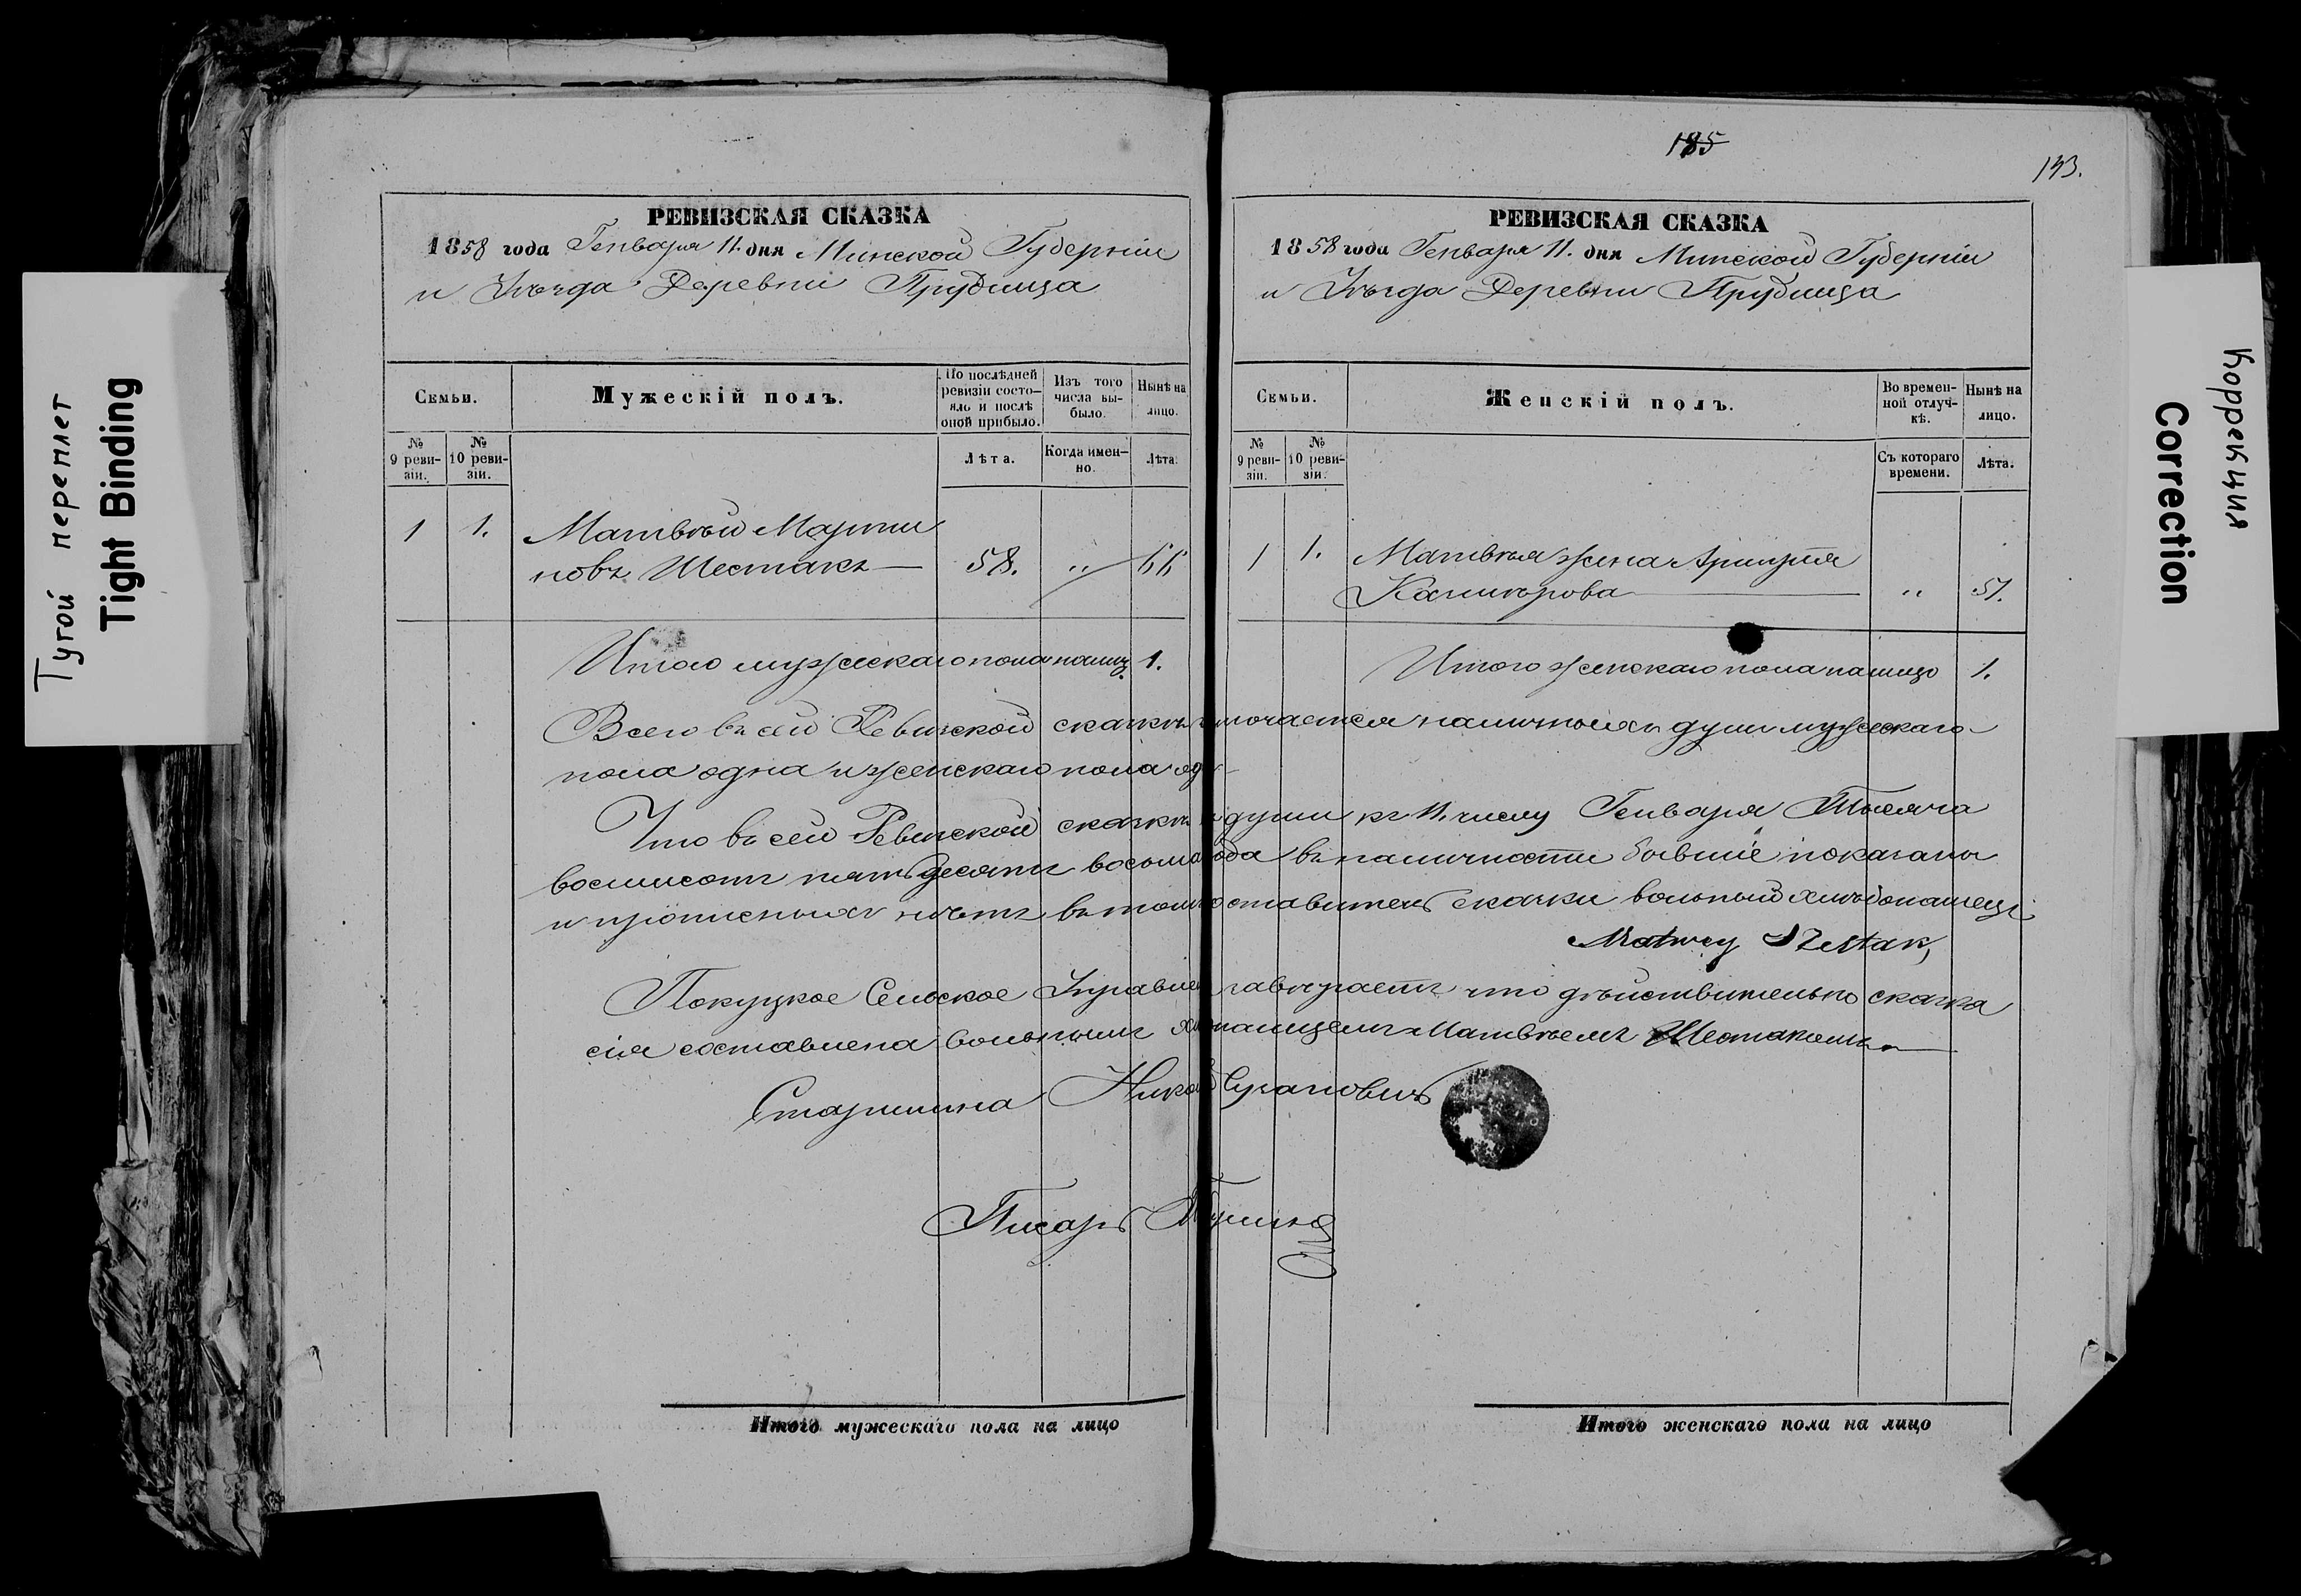 Тугой переплет
Tight Binding
РЕВИЗСКАЯ СКАЗКА
1858 года Генваря 11. дня Минской Губерніи
и Уѣзда Деревни Прудища
Семьи.
Мужескій полъ.
По послѣдней ревизіи состояло и послѣ оной прибыло.
Изъ того числа выбыло.
Нынѣ на лицо.
№ 9 ревизіи.
№ 10 ревизіи.
Лѣта.
Когда именно.
Лѣта.
1 1. Матвѣй Марти
новъ Шестакъ 58. „ 66
Итого мужескаго пола налиц. 1.
185
193.
РЕВИЗСКАЯ СКАЗКА
1858 года Генваря 11. дня Минской Губерніи
и Уѣзда Деревни Прудища
Семьи.
Женскій полъ.
Во временной отлучкѣ.
Нынѣ на лицо.
№ 9 ревизіи.
№ 10 ревизіи.
Съ котораго времени.
Лѣта.
1 1. Матвѣя жена
„ 51.
Итого женскаго пола налицо 1.
Всего въ сей Ревизской сказкѣ наличныхъ душ мужескаго
пола одна и женскаго пола
Что въ сей Ревизской сказкѣ души къ 11. числу Генваря Тысяча
восмисотъ пятьдесятъ восьма въ наличности бывшіе показаны
и прописныхъ нѣтъ въ томъ сказки вольный хлѣбопашецъ
Matwey Szestak,
Сельское завѣряетъ что дѣйствительно сказка
сія составлена вольнымъ Матвѣемъ Шестакомъ
Старшина
Писарь
Итого мужескаго пола на лицо
Итого женскаго пола на лицо
Коррекция
Correction